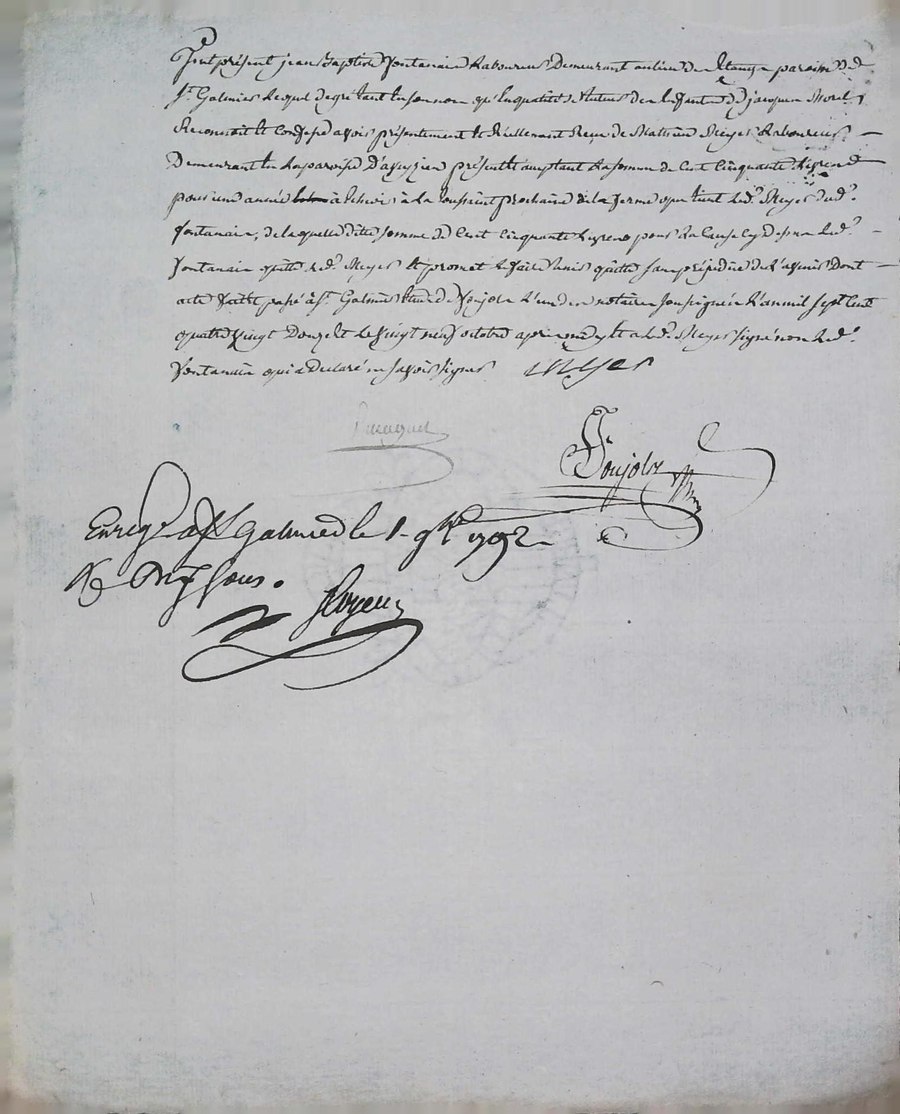 Fut présent jean Baptiste fontanais Laboureur Demeurant au lieu de paroisse de
St. Galmier Lequel degré tant en son nom qu'en qualité de tuteur de Enfants de jacques Morel
Reconnoit et Confesse avoir présentement et Réellement Reçu de Mathieu Meyer Laboureur
Demeurant en La paroisse D'aveyzieu présent et acceptant La somme de Cent Cinquante Livres
pour une année à Echoir à la toussaint prochaine de la ferme que tient Led. Meyer dud.
fontanais, de laquelle ditte somme de Cent Cinquante Livres pour La Cause Cy Dessus Led.
fontanais quitte led. Meyer Et promet Le faire tenir quitte sans préjudice de L'avenir Dont
acte fait et passé à St. Galmier Etude de Poujolz L'un des notaires soussignés L'an mil sept Cent
quatre Vingt Douze et Le Vingt neuf octobre après midy Et a Led. Meyer signé non Led.
fontanais qui a Declaré ne savoir signer Meyer
Poujolz
Enreg. à St Galmier le 1. 9bre 1792
Rc sous.